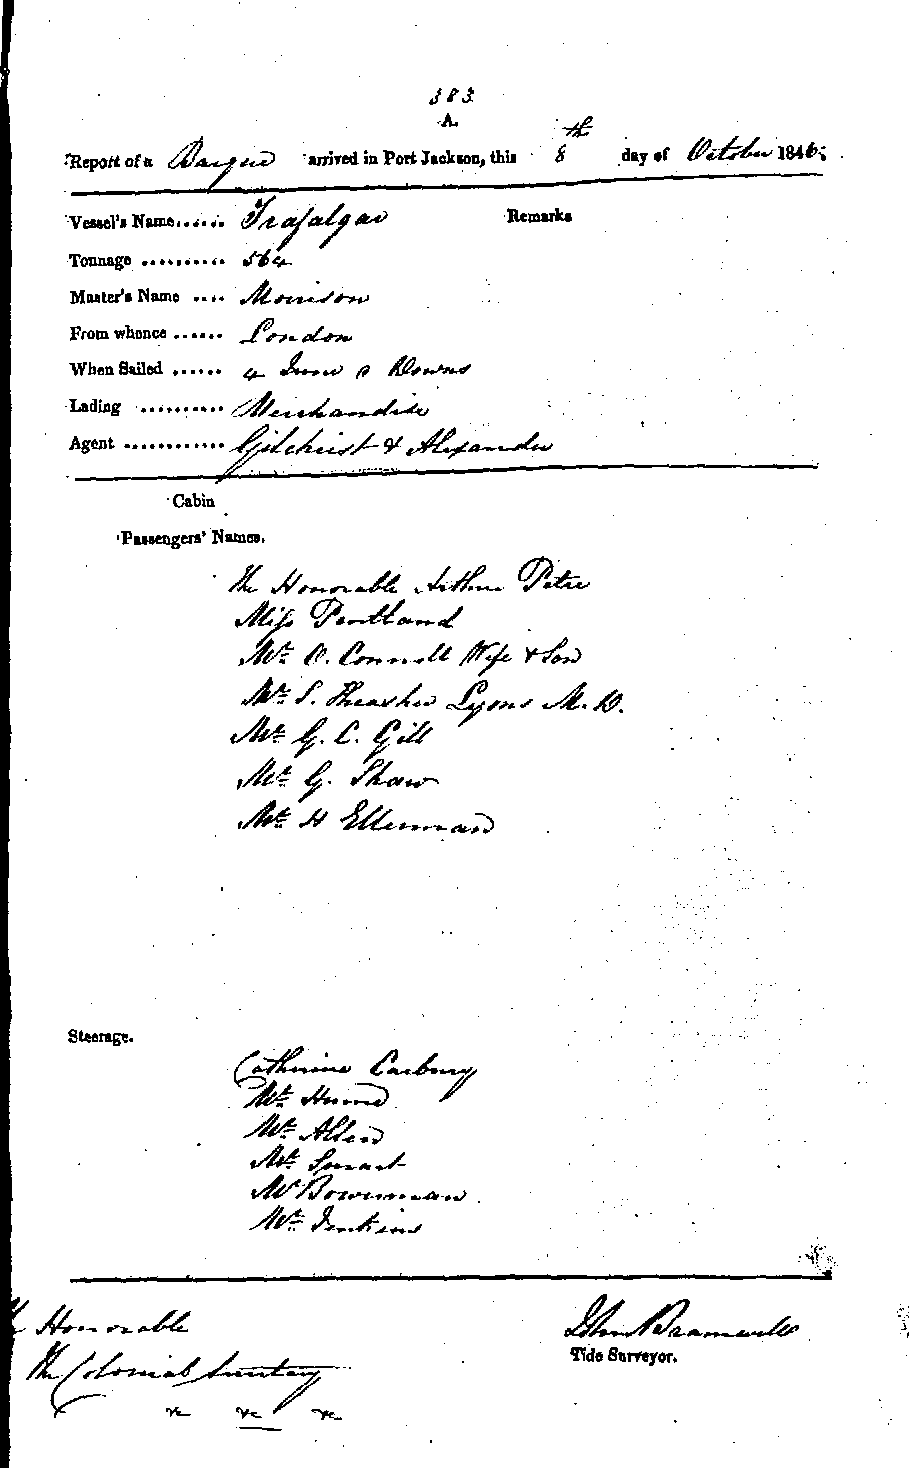 383
A.
Report of a Barque arrived in Port Jackson, this 8th day of October 1846.
Vessel's Name....... Trafalgar Remarks
Tonnage .......... 564
Master's Name .... Morrison
From whence ...... London
When Sailed ...... 4 June Downs
Lading .......... Merchandise
Agent ............ Gilchrist & Alexander
Cabin
Passengers' Names.
The Honorable Arthur Petre
Miss Pentland
Mr. O. Connell Wife & Son
Mr. S. Lyons M.D.
Mr. G. C. Gill
Mr. G. Shaw
Mr. H Ellerman
Steerage.
Catherine Carbury
Mr. Hume
Mr. Allen
Mr. Smart
Mr Bowerman
Mr. Jenkins
Honorable John Bramwell
The Colonial Secretary Tide Surveyor.
&c &c &c